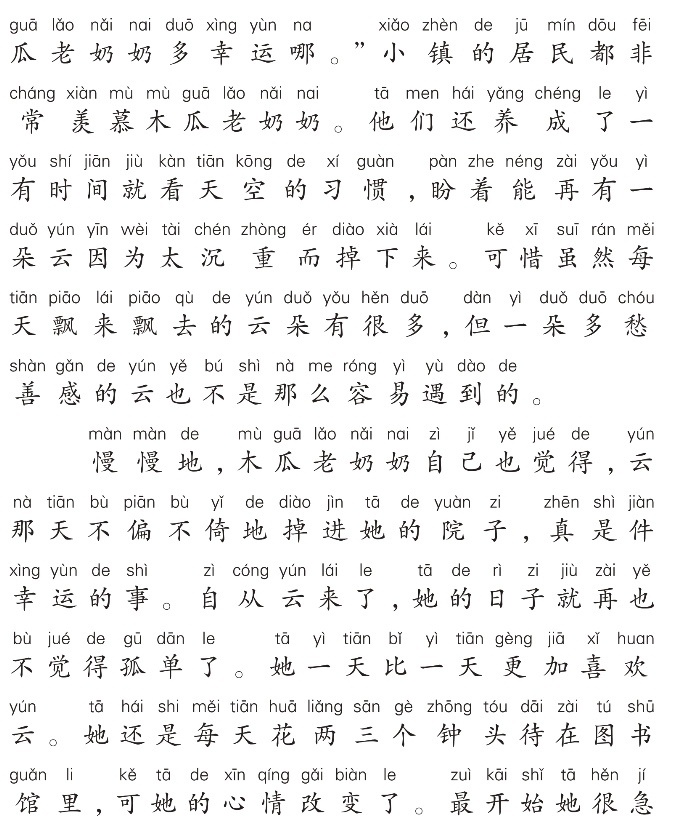 guā lǎo nǎi nai duō xìng yùn na xiǎo zhèn de jū mín dōu fēi
瓜老奶奶多幸运哪。”小镇的居民都非
cháng xiàn mù mù guā lǎo nǎi nai tā men hái yǎng chéng le yì
常羡慕木瓜老奶奶。他们还养成了一
yǒu shí jiān jiù kàn tiān kōng de xí guàn pàn zhe néng zài yǒu yì
有时间就看天空的习惯，盼着能再有一
duǒ yún yīn wèi tài chén zhòng ér diào xià lái kě xī suī rán měi
朵云因为太沉重而掉下来。可惜虽然每
tiān piāo lái piāo qù de yún duǒ yǒu hěn duō dàn yì duǒ duō chóu
天飘来飘去的云朵有很多，但一朵多愁
shàn gǎn de yún yě bú shì nà me róng yì yù dào de
善感的云也不是那么容易遇到的。
màn màn de mù guā lǎo nǎi nai zì jǐ yě jué de yún
慢慢地，木瓜老奶奶自己也觉得，云
nà tiān bù piān bù yǐ de diào jìn tā de yuàn zi zhēn shì jiàn
那天不偏不倚地掉进她的院子，真是件
xìng yùn de shì zì cóng yún lái le tā de rì zi jiù zài yě
幸运的事。自从云来了，她的日子就再也
bù jué de gū dān le tā yì tiān bǐ yì tiān gèng jiā xǐ huan
不觉得孤单了。她一天比一天更加喜欢
yún tā hái shi měi tiān huā liǎng sān gè zhōng tóu dāi zài tú shū
云。她还是每天花两三个钟头待在图书
guǎn li kě tā de xīn qíng gǎi biàn le zuì kāi shǐ tā hěn jí
馆里，可她的心情改变了。最开始她很急